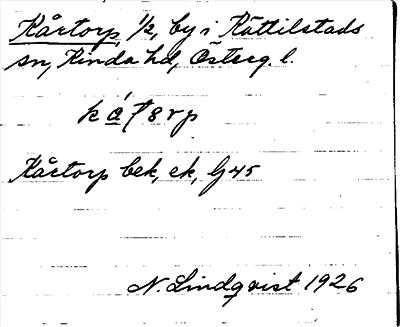 Kårtorp, 1/2, by i Kättilstads
sn, Kinda hd, Österg. l.
Kårtorp bek, ek, Gj45
N. Lindqvist 1926